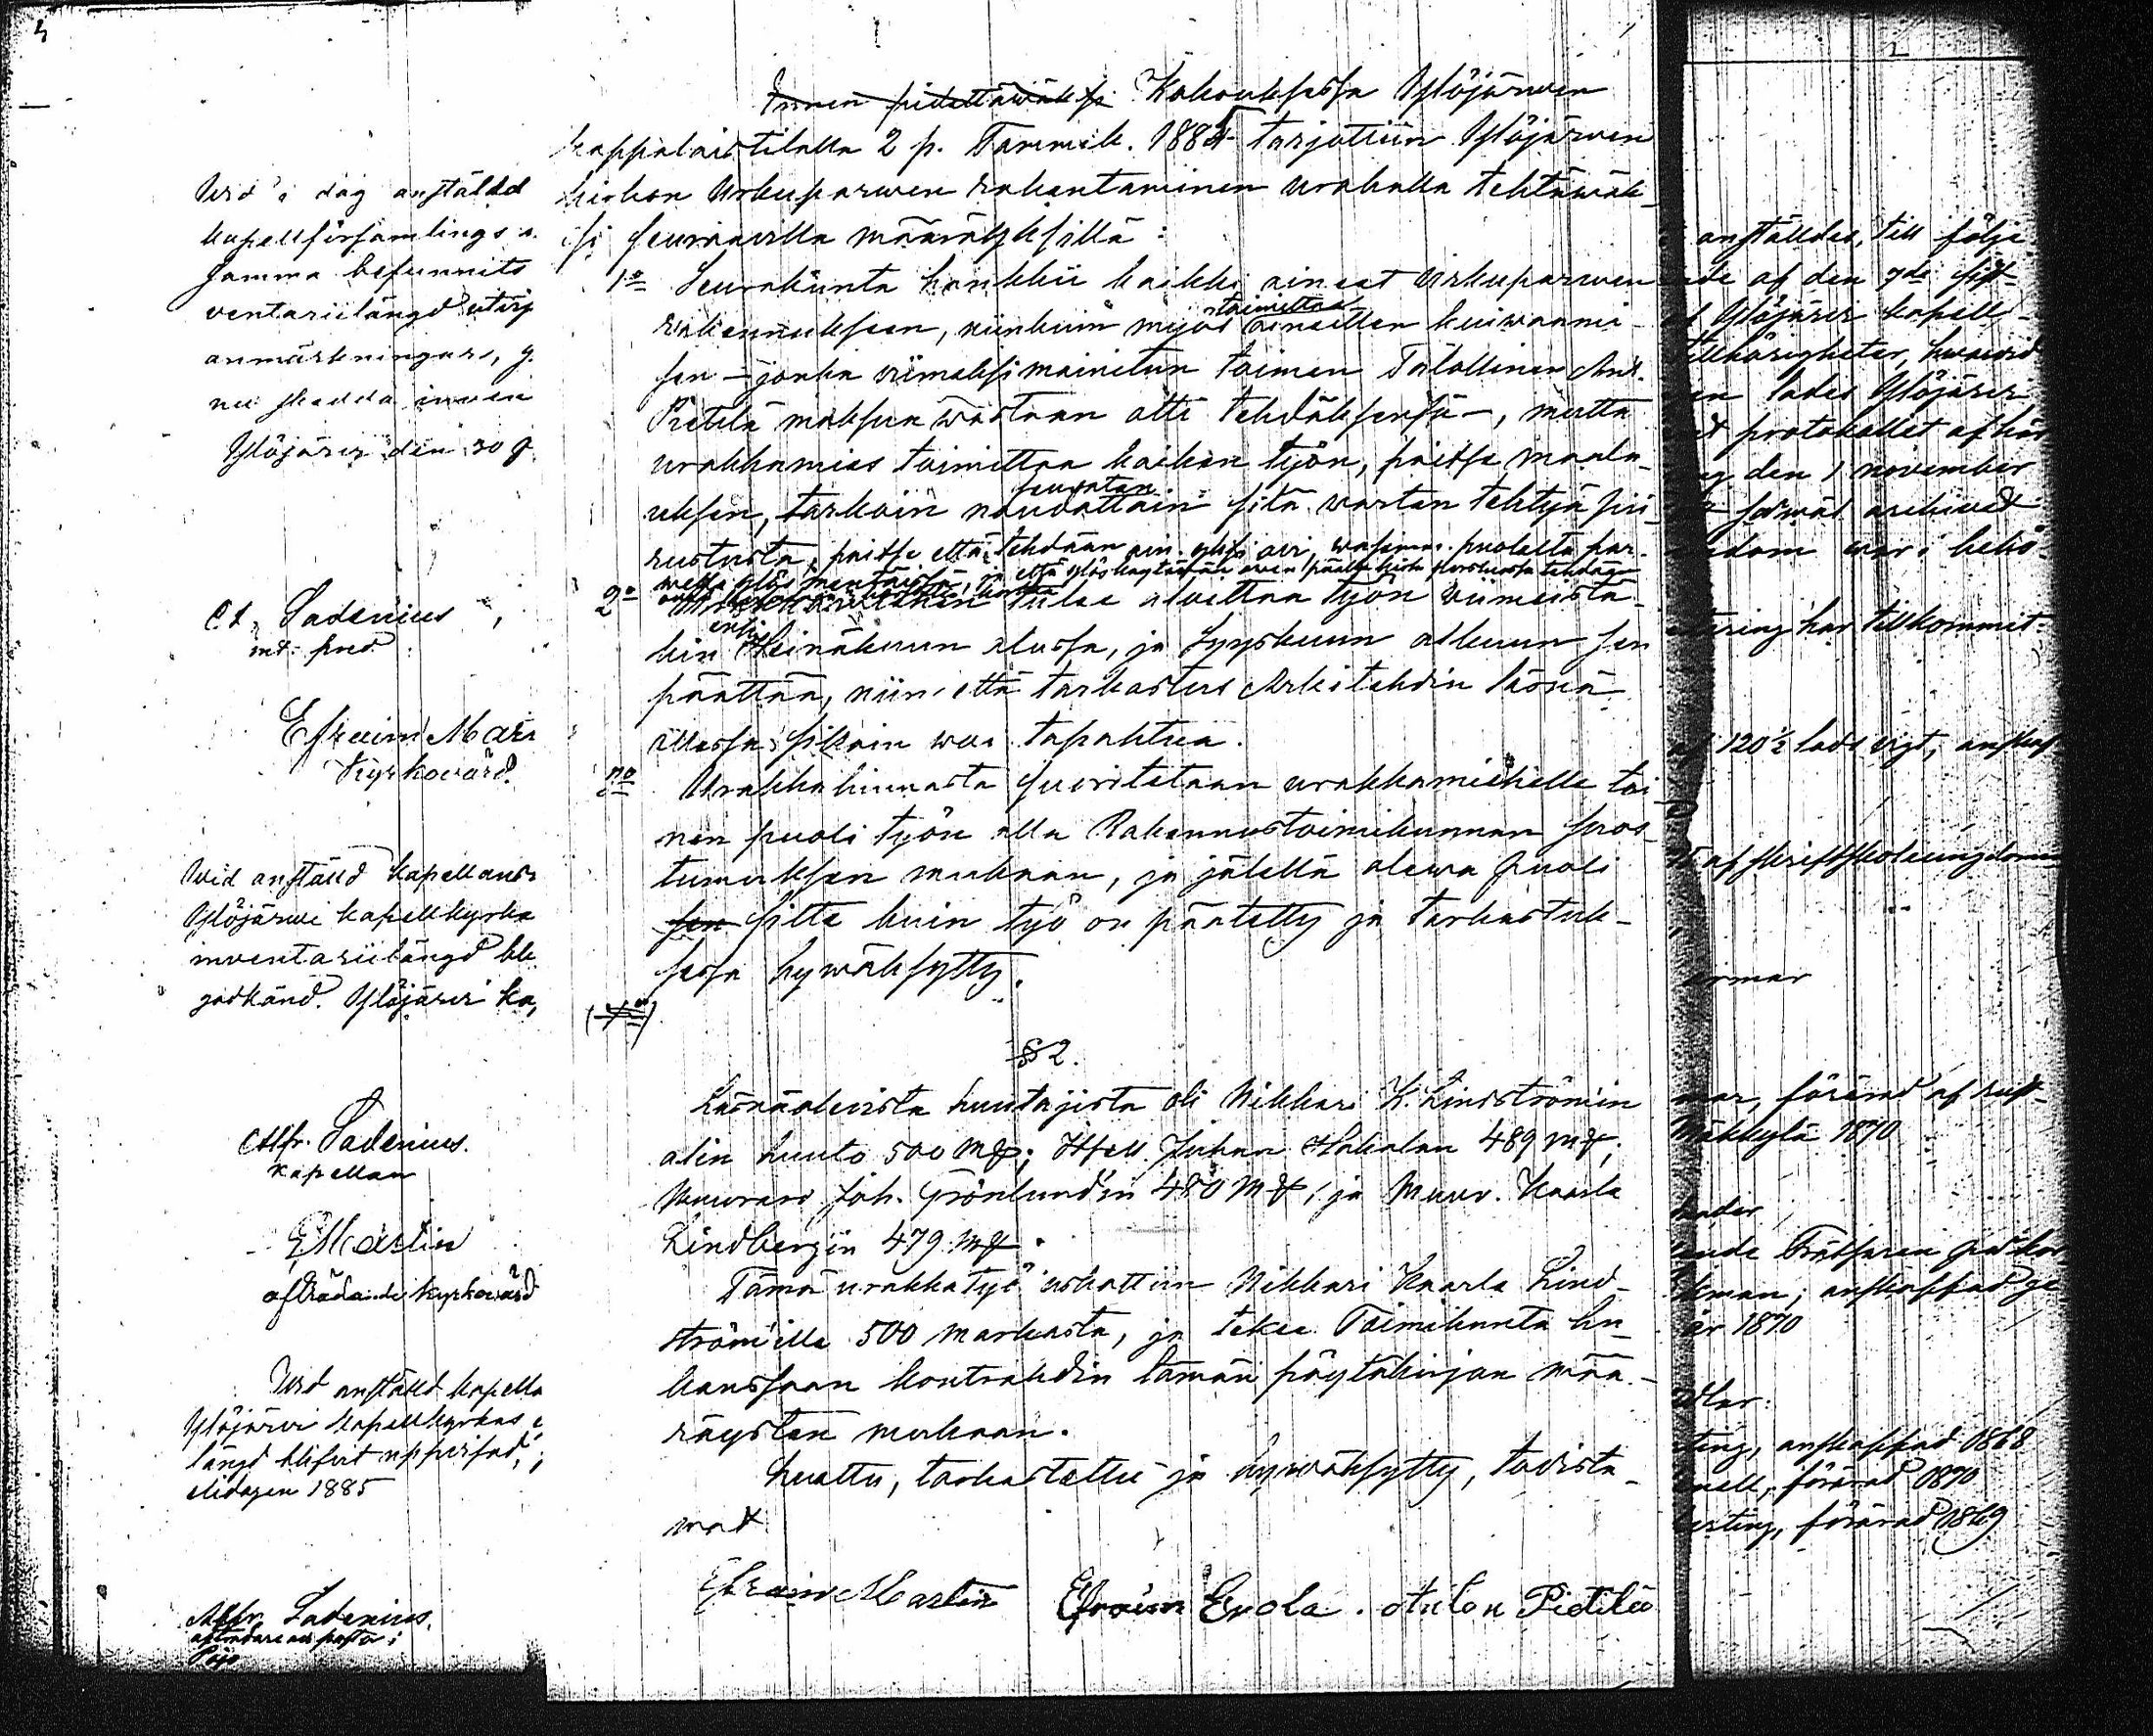 4
Wid i dag anstäld
kapellförsamlings s.
samma befunnits
ventariilängd utvis
anmärkningar, g.
nu skedda inven
Ylöjärvi den 30
A. Sadenius
Efraim Mar
Kyrkovärd.
Wid anställd kapellans
Ylöjärvi kapellkyrka
inventariilängd ble
godkänd. Ylöjärvi ka,
Alfr. Sadenius.
Kapellan
E Martin
afträdande kyrkovärd
Wid anställd kapella
Ylöjärvi kapellkyrkas
längd blifvit uppvisad,
elidagen 1885
Alfr. Sadenius.
pastor i
pidettäwäksi Kokouksessa Ylöjärwen
kappalaistilalla 2 p. Tammik. 1885 tarjottiin Ylöjärwen
kirkon Urkuparwen rakentaminen urakalla tehtäwäk-
si seuraawilla määräyksillä:
1o Seurakunta hankkii kaikki aineet Urkuparwen
rakennukseen, niinkuin myös toimittaa aineitten kuiwaami-
sen – jonka viimeksi mainitun toimen Talollinen And.
Pietilä maksua wastaan otti tehdäksensä –, mutta
urakkamies toimittaa kaiken työn, paitse maala-
uksen, tarkoin noudattain seuratan sitä warten tehtyä pii-
rustusta, paitse että tehdään owi wasemm. puolelta par-
2o tulee aloittaa työn viimeistä-
kin Heinäkuun alussa, ja Syyskuun alkuun sen
päättää, niin että tarkastus Arkitehdin läsnä
ollessa silloin woi tapahtua.
3o Urakkahinnasta suoritetaan urakkamiehelle toi-
nen puoli työn alla Rakennustoimikunnan suos-
tumuksen mukaan, ja jälellä olewa puoli
sen sitte kuin työ on päätetty ja tarkastuk-
sessa hywäksytty.
§ 2.
Läsnäolevista huutajista oli Nikkari K. Lindström'in
alin huuto 500 mk; Itsell. Juhan Hakalan 489 mk;
Muurari Joh. Grönlund'in 480 mk, ja Muur. Kaarla
Lindbergin 479 mk.
Tämä urakkatyö uskottiin Nikkari Kaarla Lind-
ström'ille 500 markasta, ja tekee Toimikunta hä-
kanssaan kontrahdin tämän pöytäkirjan mää-
räysten mukaan.
Luettu, tarkastettu ja hywäksytty, todista-
wat
Efraim Martin Efraim Erola. Anton Pietilä
2
anställdes, till följe
nde af den 7de sist-
Ylöjärvi kapell-
tillhörigheter, hwarvid
Ylöjärvi
protokollet af hår
den 1 november
archivet
dom war, behö-
tering har tillkommit
af 120½ lods vigt, anskaf
af skriftskoleungdomen
ormar
mar, förärad af rust-
Mäkkylä 1870
nader
kman, anskaffad ge
år 1870
ting, anskaffad 1868
nell, förärad 1870
ersting, förärad 1869